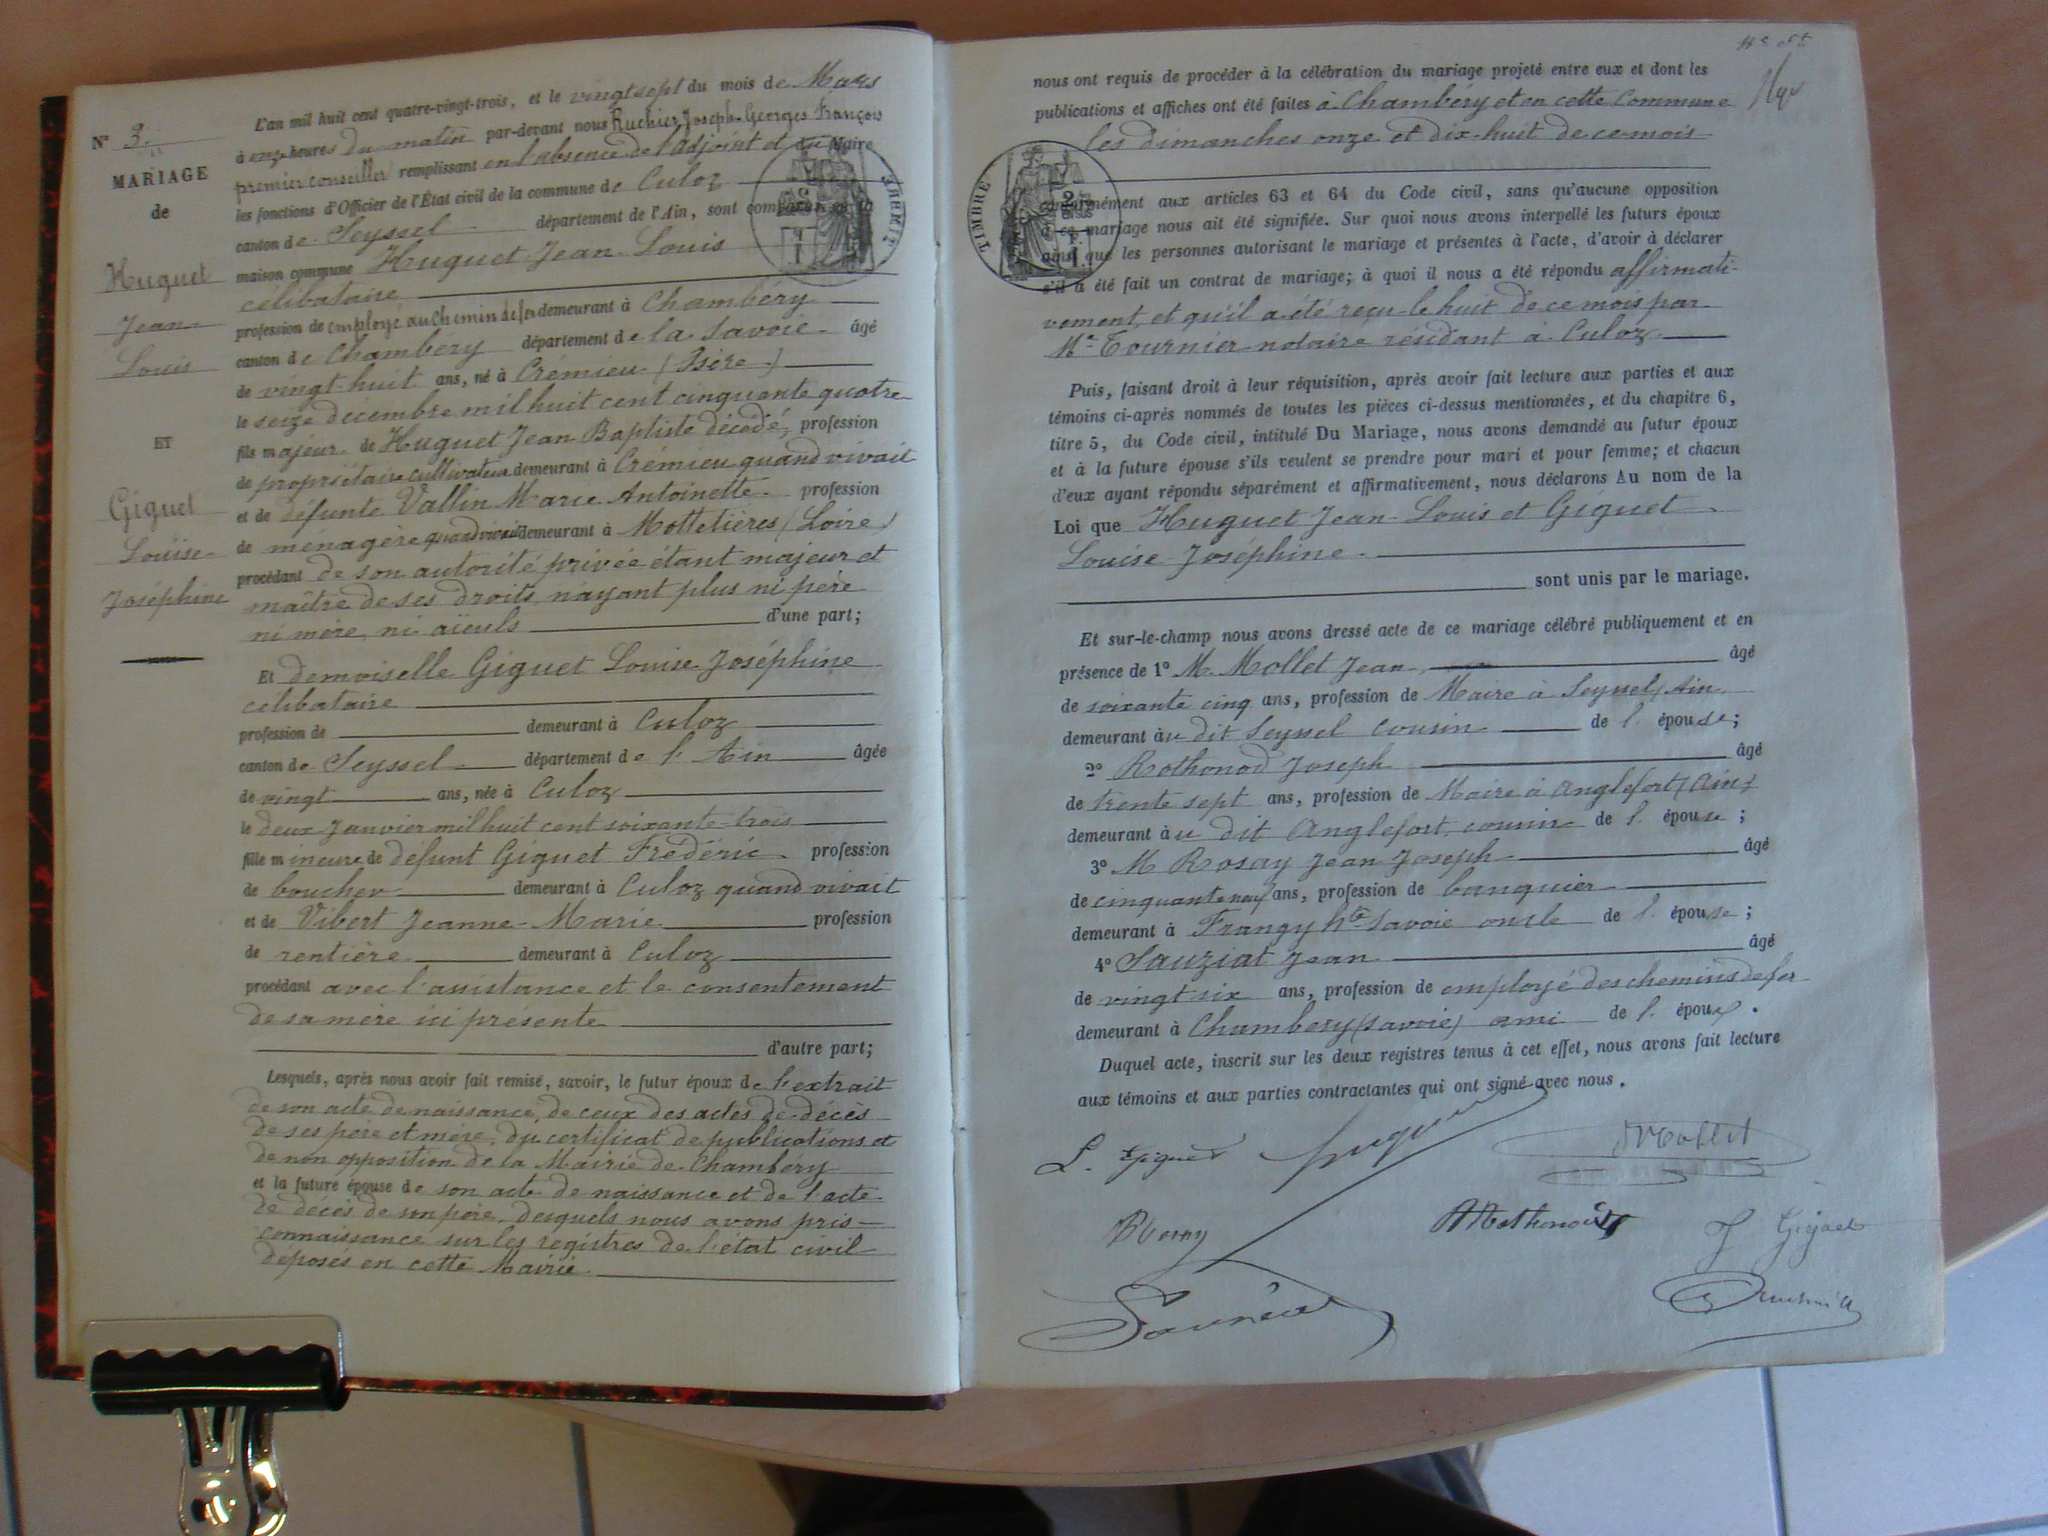 N° 3.
MARIAGE
de
Huguet
Jean
Louis
ET
Giguet
Louise
Joséphine
L'an mil huit cent quatre-vingt-trois, et le vingt sept du mois de Mars
à onze heures du matin par-devant nous Ruchier Joseph-Georges François
premier conseiller remplissant en l'absence de l'adjoint et du Maire
les fonctions d'Officier de l'État civil de la commune de Culoz
canton de Seyssel département de l'Ain, sont comparus en la
maison commune Huguet Jean-Louis
célibataire
profession de employé au chemin de fer demeurant à Chambéry
canton de Chambéry département de la Savoie âgé
de vingt-huit ans, né à Crémieu (Isère)
le seize décembre mil huit cent cinquante quatre
fils majeur de Huguet Jean-Baptiste décédé, profession
de propriétaire cultivateur demeurant à Crémieu quand vivait
et de défunte Vallin Marie Antoinette profession
de ménagère quand vivait demeurant à Mottetières (Loire)
procédant de son autorité privée étant majeur et
maître de ses droits, n'ayant plus ni père
ni mère, ni aïeuls d'une part;
Et demoiselle Giguet Louise Joséphine
célibataire
profession de demeurant à Culoz
canton de Seyssel département de l'Ain âgée
de vingt ans, née à Culoz
le deux Janvier mil huit cent soixante-trois
fille mineure de défunt Giguet Frédéric profession
de boucher demeurant à Culoz quand vivait
et de Vibert Jeanne-Marie profession
de rentière demeurant à Culoz
procédant avec l'assistance et le consentement
de sa mère ici présente
d'autre part;
Lesquels, après nous avoir fait remise, savoir, le futur époux de l'extrait
de son acte de naissance, de ceux des actes de décès
de ses père et mère, du certificat de publications et
de non opposition de la Mairie de Chambéry
et la future épouse de son acte de naissance et de l'acte
de décès de son père, desquels nous avons pris
connaissance sur les registres de l'état civil
déposés en cette Mairie
nous ont requis de procéder à la célébration du mariage projeté entre eux et dont les
publications et affiches ont été faites à Chambéry et en cette Commune
les dimanches onze et dix-huit de ce mois
TIMBRE
conformément aux articles 63 et 64 du Code civil, sans qu'aucune opposition
à ce mariage nous ait été signifiée. Sur quoi nous avons interpellé les futurs époux
ainsi que les personnes autorisant le mariage et présentes à l'acte, d'avoir à déclarer
s'il a été fait un contrat de mariage; à quoi il nous a été répondu affirmati-
vement, et qu'il a été reçu le huit de ce mois par
Me Tournier notaire résidant à Culoz
Puis, faisant droit à leur réquisition, après avoir fait lecture aux parties et aux
témoins ci-après nommés de toutes les pièces ci-dessus mentionnées, et du chapitre 6,
titre 5, du Code civil, intitulé Du Mariage, nous avons demandé au futur époux
et à la future épouse s'ils veulent se prendre pour mari et pour femme; et chacun
d'eux ayant répondu séparément et affirmativement, nous déclarons Au nom de la
Loi que Huguet Jean-Louis et Giguet
Louise Joséphine
sont unis par le mariage.
Et sur-le-champ nous avons dressé acte de ce mariage célébré publiquement et en
présence de 1° M. Mollet Jean âgé
de soixante cinq ans, profession de Maire à Seyssel, Ain
demeurant au dit Seyssel cousin de l'épouse;
2° Rothonod Joseph âgé
de trente sept ans, profession de Maire à Anglefort (Ain)
demeurant au dit Anglefort, cousin de l'épouse;
3° M Rosay Jean Joseph âgé
de cinquante neuf ans, profession de banquier
demeurant à Frangy hte Savoie oncle de l'épouse;
4° Sauziat Jean âgé
de vingt six ans, profession de employé des chemins de fer
demeurant à Chambéry (Savoie) ami de l'époux.
Duquel acte, inscrit sur les deux registres tenus à cet effet, nous avons fait lecture
aux témoins et aux parties contractantes qui ont signé avec nous.
L. Giguet Huguet Mollet
Rosay Rothonod J Giguet